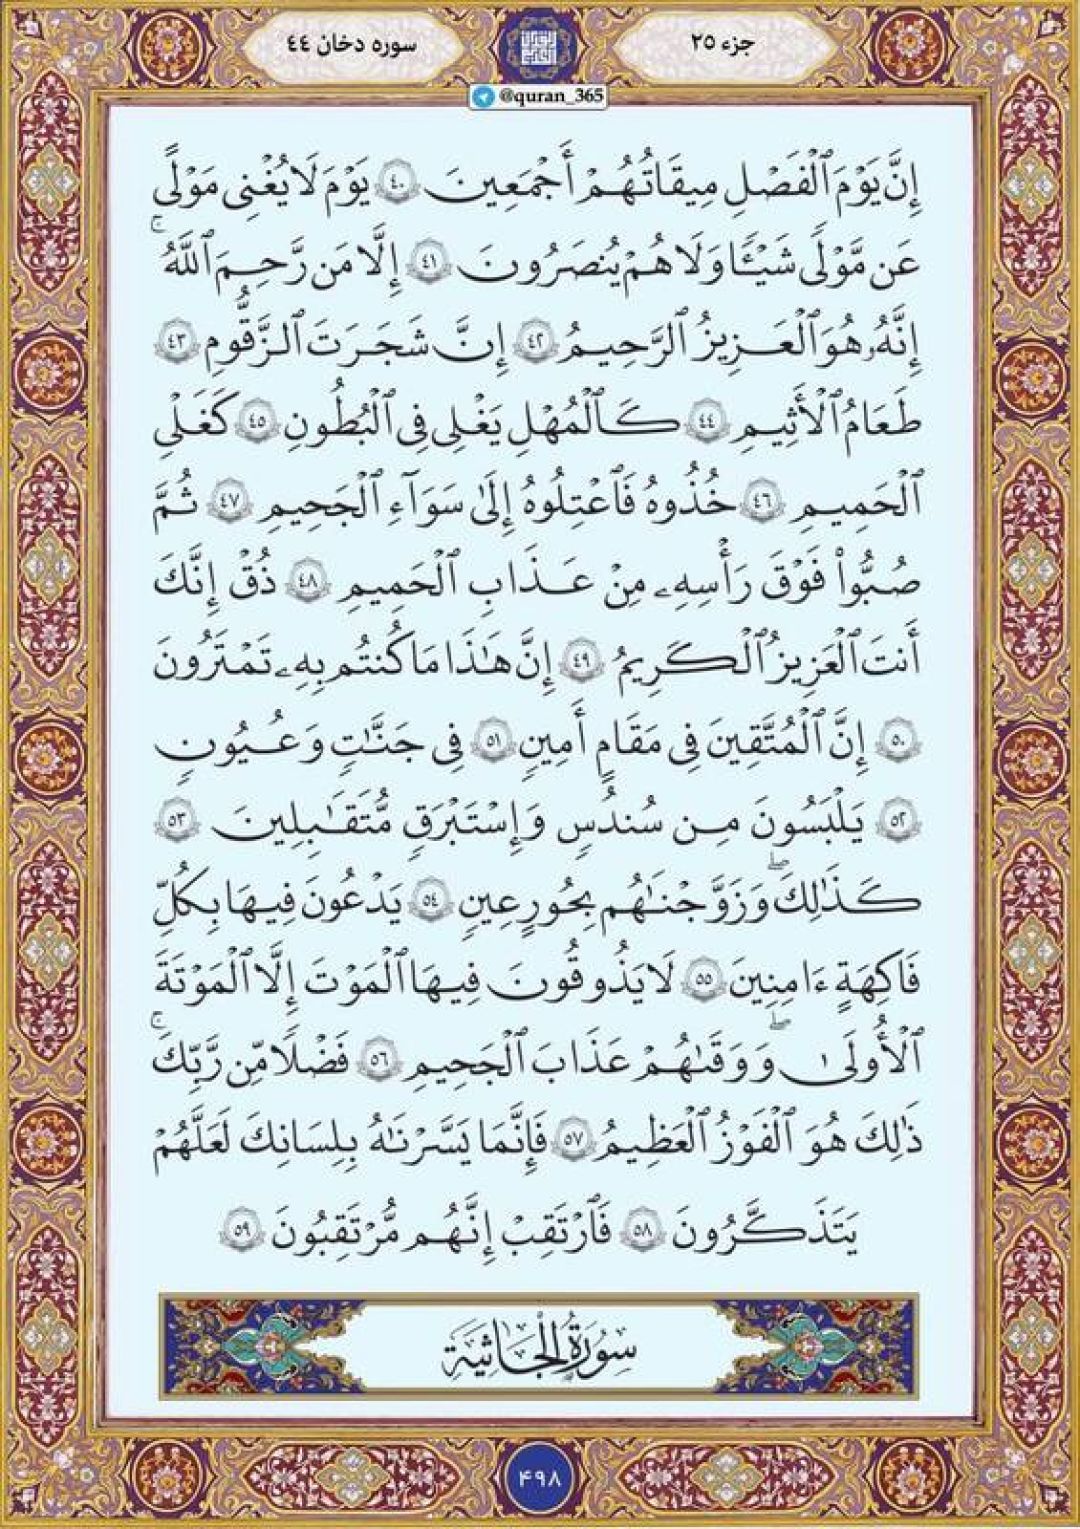 جزء ۲۵
سوره دخان ۴۴
@quran_365
إِنَّ يَوْمَ ٱلْفَصْلِ مِيقَاتُهُمْ أَجْمَعِينَ ٤٠ يَوْمَ لَا يُغْنِى مَوْلًى
عَن مَّوْلًى شَيْـًٔا وَلَا هُمْ يُنصَرُونَ ٤١ إِلَّا مَن رَّحِمَ ٱللَّهُ ۚ
إِنَّهُۥ هُوَ ٱلْعَزِيزُ ٱلرَّحِيمُ ٤٢ إِنَّ شَجَرَتَ ٱلزَّقُّومِ ٤٣
طَعَامُ ٱلْأَثِيمِ ٤٤ كَٱلْمُهْلِ يَغْلِى فِى ٱلْبُطُونِ ٤٥ كَغَلْىِ
ٱلْحَمِيمِ ٤٦ خُذُوهُ فَٱعْتِلُوهُ إِلَىٰ سَوَآءِ ٱلْجَحِيمِ ٤٧ ثُمَّ
صُبُّوا۟ فَوْقَ رَأْسِهِۦ مِنْ عَذَابِ ٱلْحَمِيمِ ٤٨ ذُقْ إِنَّكَ
أَنتَ ٱلْعَزِيزُ ٱلْكَرِيمُ ٤٩ إِنَّ هَـٰذَا مَا كُنتُم بِهِۦ تَمْتَرُونَ
٥٠ إِنَّ ٱلْمُتَّقِينَ فِى مَقَامٍ أَمِينٍ ٥١ فِى جَنَّـٰتٍ وَعُيُونٍ
٥٢ يَلْبَسُونَ مِن سُندُسٍ وَإِسْتَبْرَقٍ مُّتَقَـٰبِلِينَ ٥٣
كَذَٰلِكَ ۖ وَزَوَّجْنَـٰهُم بِحُورٍ عِينٍ ٥٤ يَدْعُونَ فِيهَا بِكُلِّ
فَـٰكِهَةٍ ءَامِنِينَ ٥٥ لَا يَذُوقُونَ فِيهَا ٱلْمَوْتَ إِلَّا ٱلْمَوْتَةَ
ٱلْأُولَىٰ ۖ وَوَقَىٰهُمْ عَذَابَ ٱلْجَحِيمِ ٥٦ فَضْلًا مِّن رَّبِّكَ ۚ
ذَٰلِكَ هُوَ ٱلْفَوْزُ ٱلْعَظِيمُ ٥٧ فَإِنَّمَا يَسَّرْنَـٰهُ بِلِسَانِكَ لَعَلَّهُمْ
يَتَذَكَّرُونَ ٥٨ فَٱرْتَقِبْ إِنَّهُم مُّرْتَقِبُونَ ٥٩
سُورَةُ الْجَاثِيَةِ
۴۹۸